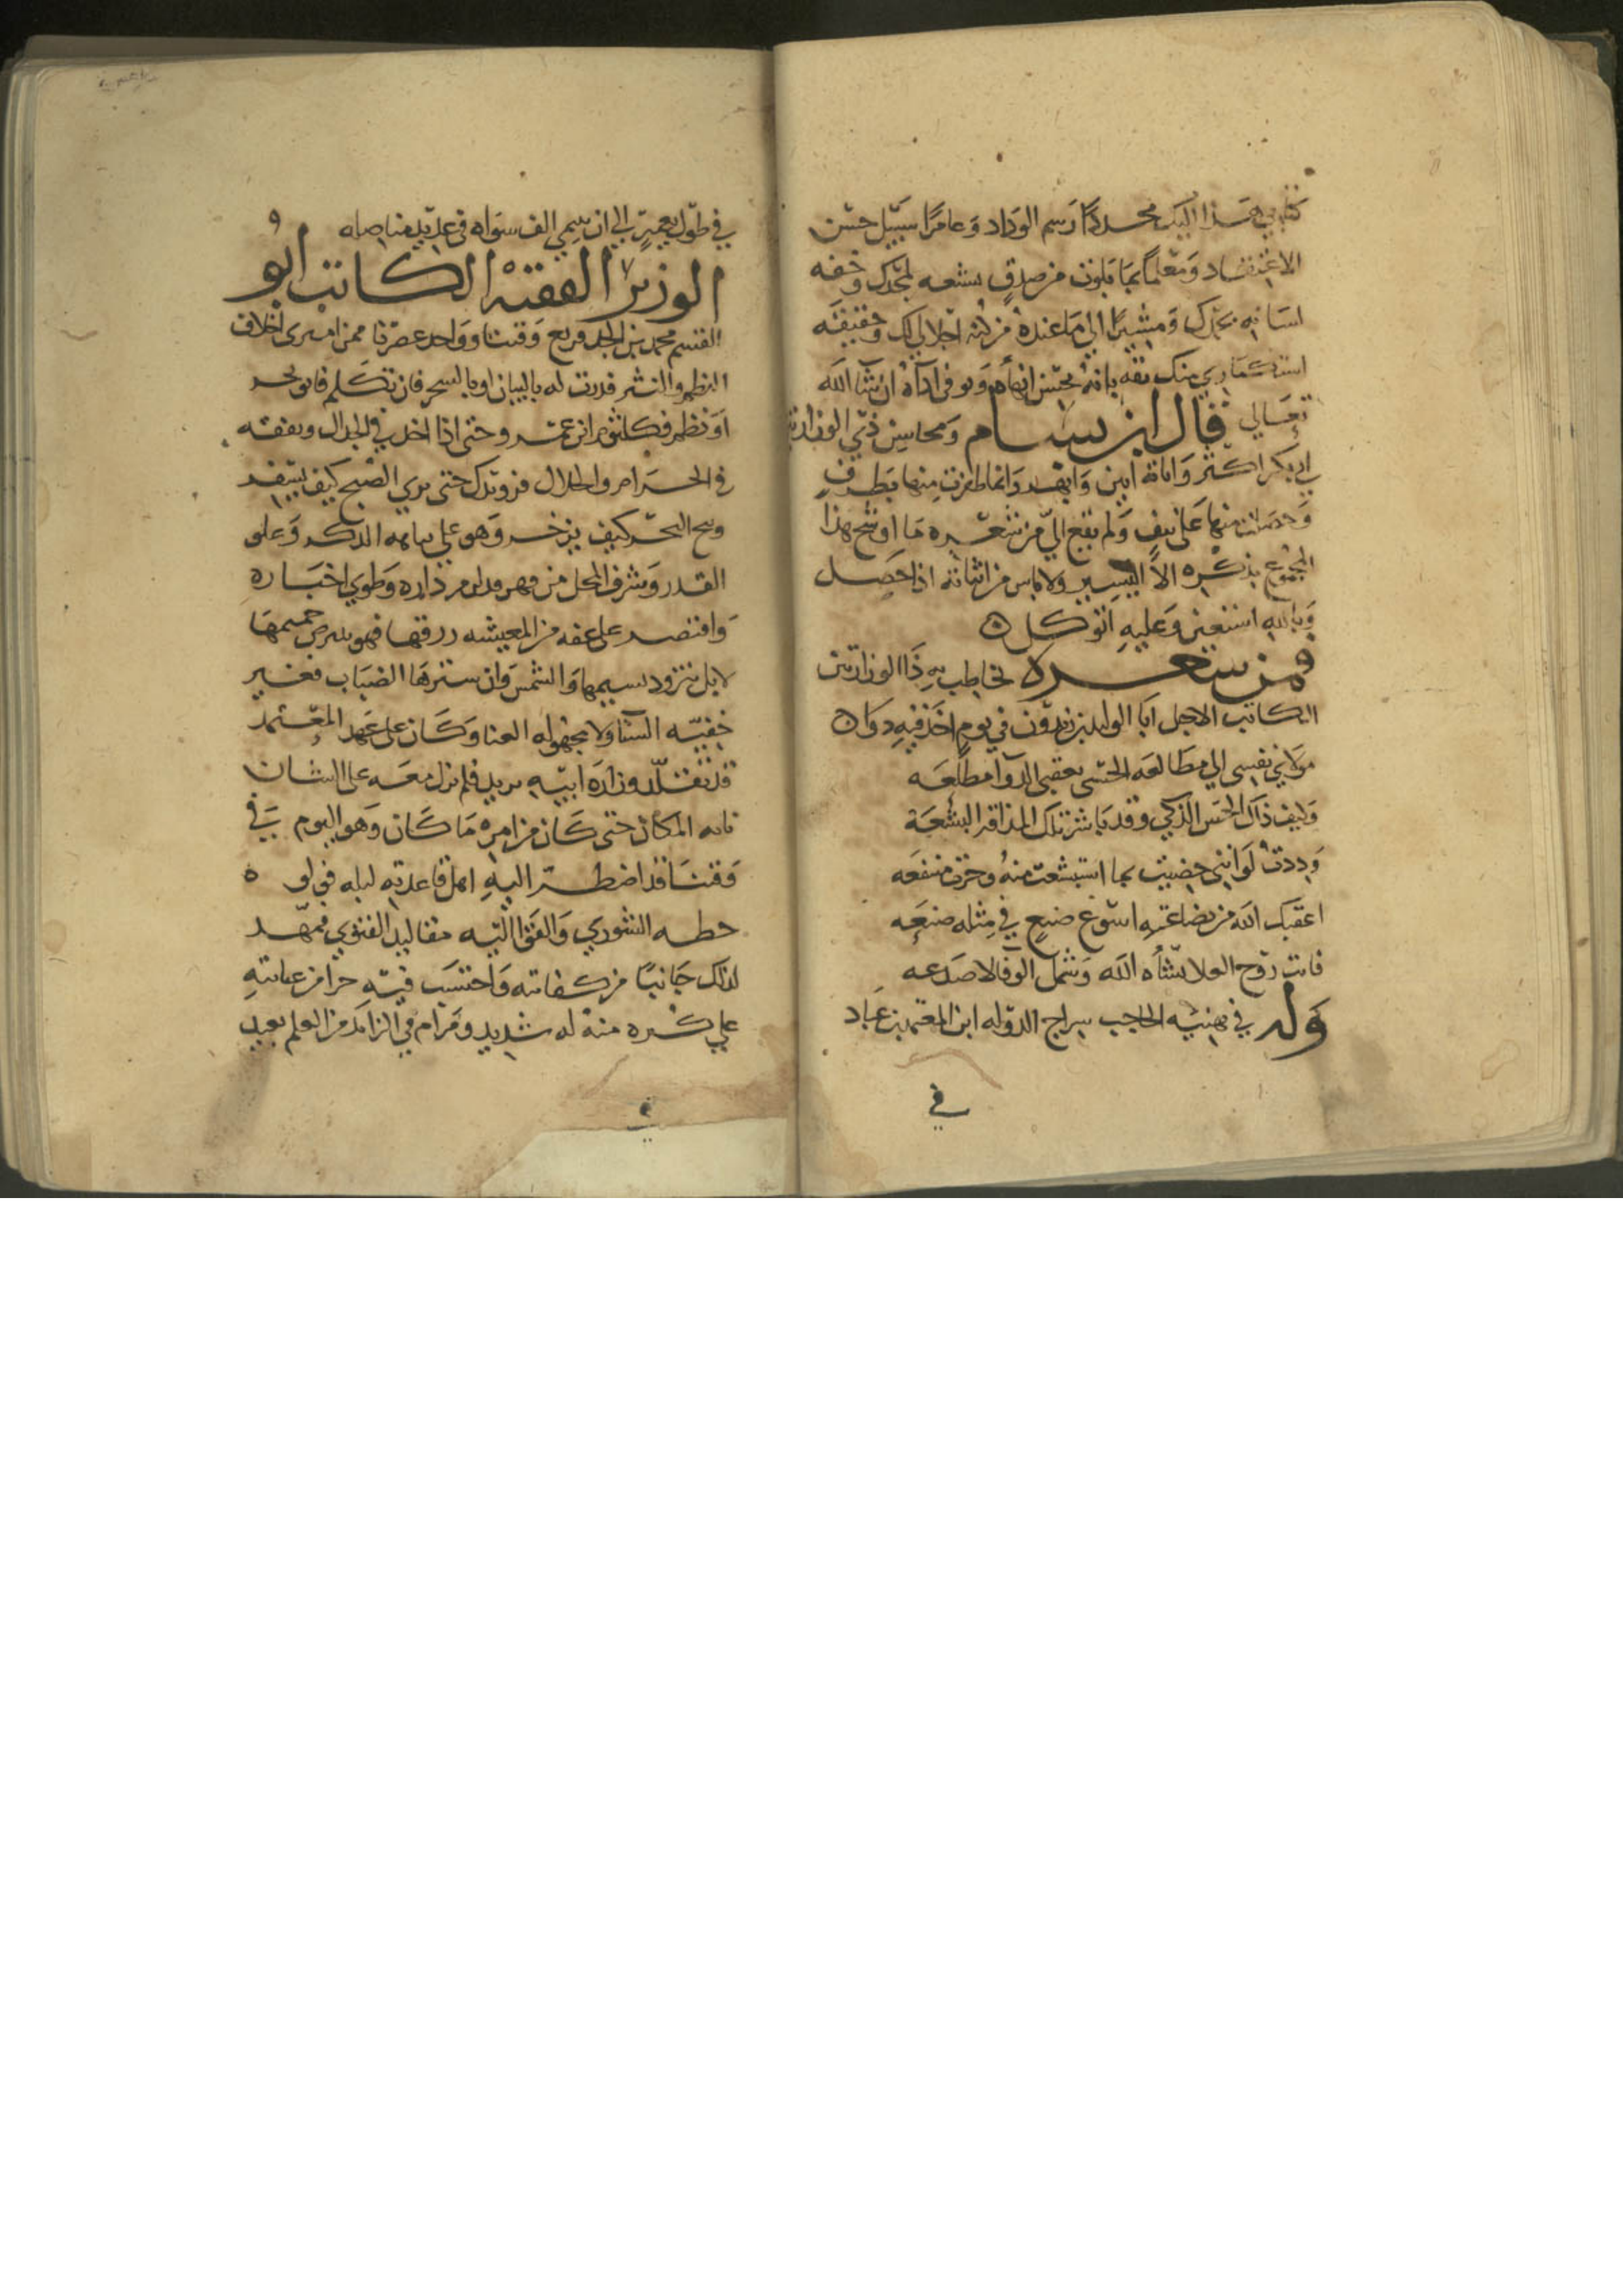 كتابي هذا اليك مجددًا رسم الوداد وعامرًا سبيل حسن
الاعتقاد ومعلمًا بما بلوت من صدق تشيعه لمجدك وخفة
لسانه بحمدك ومشيرًا الى ما عنده من كنه اجلالي لك وحقيقة
استكثاري منك ثقة بانه يحسن انهآه ويوفي ادآه ان شا الله
تعالي قال ابن بسام ومحاسن ذي الوزارتين
ابي بكر اكثر واياته ابين وابهر وانما ظفرت منها بطرف
وحصلت منها على نيف ولم يقع الي من شعره ما اوشح هذا
المجموع بذكره الا اليسير ولا باس من اثباته اذا حصل
وبالله استعين وعليه اتوكل
ومن شعره يخاطب به ذا الوزارتين
الكاتب الاجل ابا الوليد بن زيدون في يوم اخذ فيه دوا
مولاي نفسي الي مطالعة الحسنى بعقبى الدوآ مطلعه
وكيف ذاك الحس الذكي وقد باشر تلك المذاقة البشعة
وددت لو انني خصيت بما استبشعت منه وحزت منفعه
اعقبك الله من بضاعته اسوغ صنع في مثله صنعه
فانت روح العلا يشاه الله وشمل الوفا لا صدعه
وله في تهنيه الحاجب سراج الدوله ابن المعتمد بن عباد
في
في طول يعمر الي ان يسمى الف سواه في عديد مناصله
الوزير الفقيه الكاتب ابو
القسم محمد بن الجد قريع وقتنا وواحد عصرنا ممن امترى اخلاف
النظم والنثر فدرت له بالبيان او بالسحر فان تكلم فابو بحر
او نظم فكلثوم ابن عمرو حتى اذا اخذ في الجدال وبفقه
في الحرام والحلال فرويدك حتى تري الصبح كيف يسفر
وبج البحر كيف يزخر وهو علي نباهة الذكر وعلو
القدر وشرف المحل من فهر داره وطوي اخباره
واقتصر على عفه من المعيشه فهو جميمها
لا بل تتزود نسيمها والشمس وان سترها الضباب فغير
خفيه السنا ولا مجهوله الغنا وكان على عهد المعتمد
قد تقلد وزاره ابنه يزيد فلم يزل معه على الشان
نابه المكان حتى كان من امره ما كان وهو اليوم في
وقتنا قد اضطر اليه اهل قاعدته لبله فولو ه
خطه الشوري والقوا اليه مقاليد الفتوي فمهد
لذلك جانبًا من كفايته واحتسب فيه جزا من عنايته
علي كثره منه له شديد ومرام في الزامه من العلم بعيد